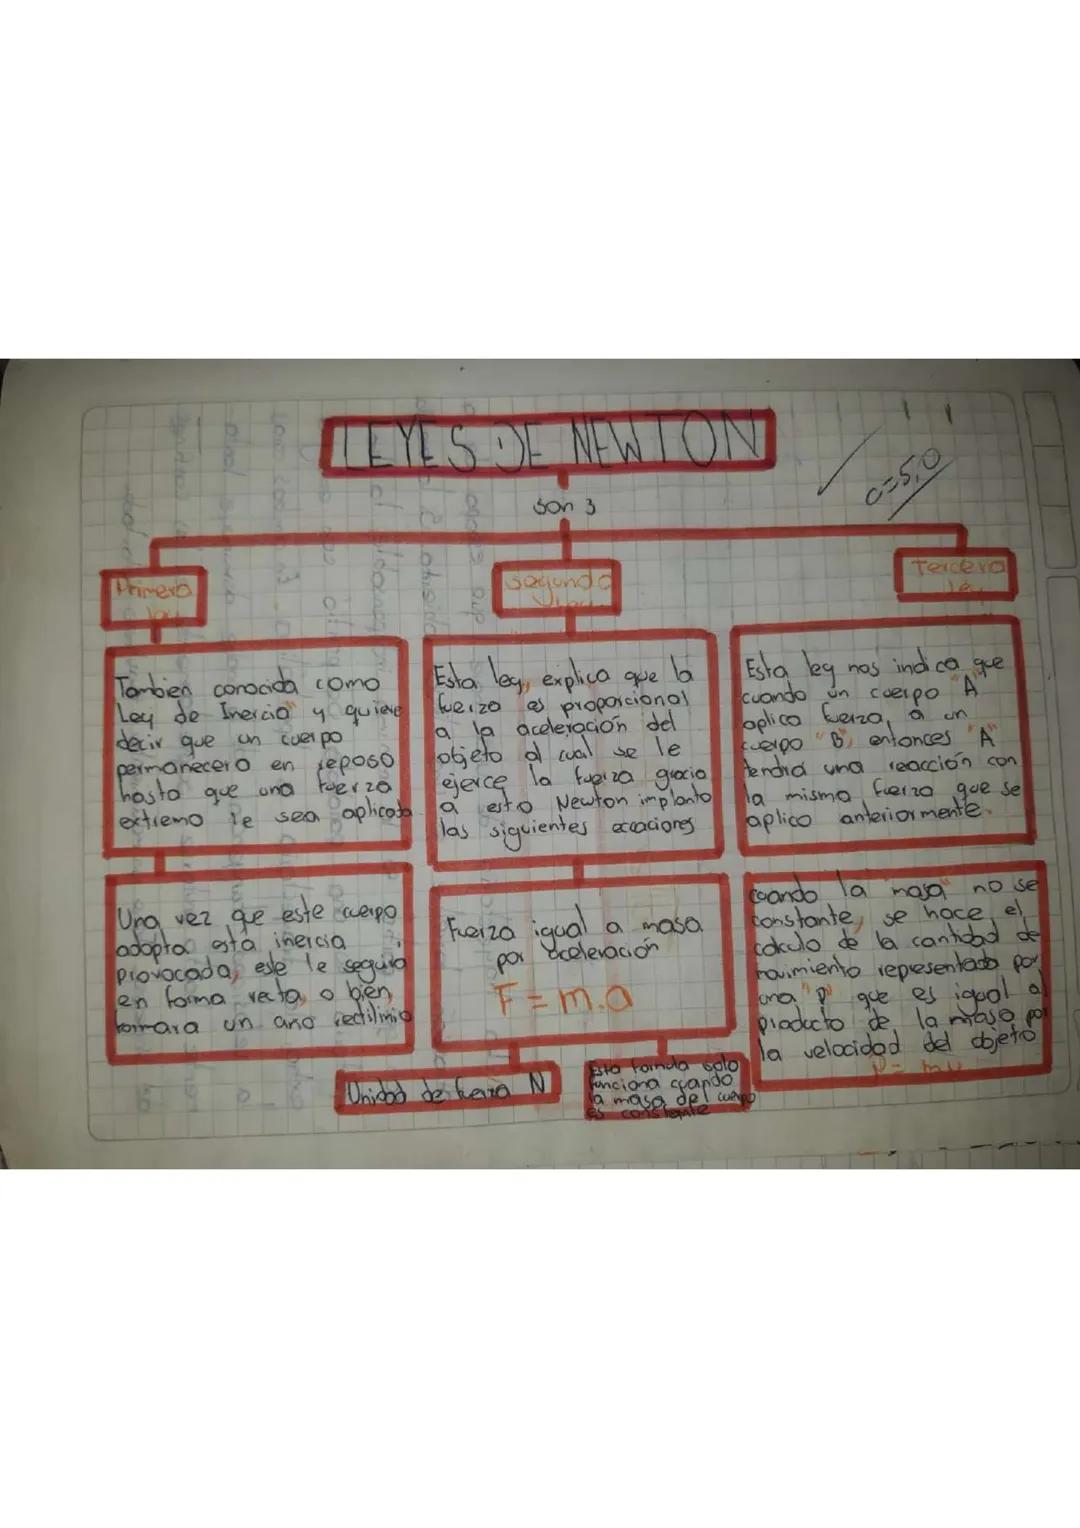 LEYES DE NEWTON
c=5,0
son 3
Primera
ley
Tambien conocida como
Ley de Inercia" y quiere
decir que un cuerpo
permanecera en reposo
hasta que una fuerza
extierna le sea aplicada
Una vez que este cuerpo
adopta esta inercia
provocada, este le seguira
en forma recta, o bien,
formara un arco rectilinio
Segunda
ley
Esta ley, explica que la
fuerza es proporcional
a la aceleración del
objeto al cual se le
ejerce la fuerza gracia
a esto Newton implanto
las siguientes ecuaciones
Fuerza igual a masa
por aceleración
F = m.a
Unidad de fuerza N
Esta formula solo
funciona cuando
la masa del cuerpo
es constante
Tercera
ley
Esta ley nos indica que
cuando un cuerpo "A"
aplica fuerza, a un
cuerpo "B", entonces "A"
tendra una reacción con
la misma fuerza que se
aplico anteriormente.
cuando la "masa" no se
constante, se hace el,
cálculo de la cantidad de
movimiento representado por
una "p" que es igual al
producto de la masa por
la velocidad del objeto
P= mv